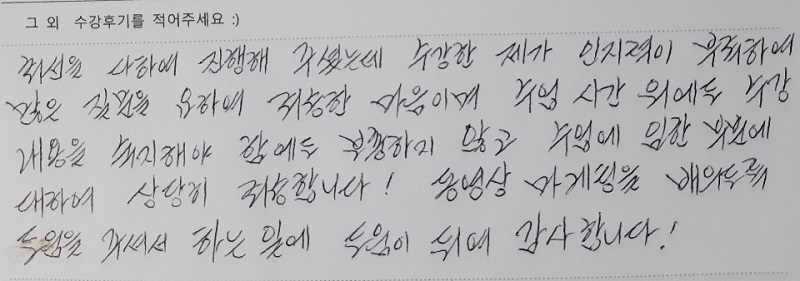 그 외 수강후기를 적어주세요 :)
최선을 다하여 진행해 주셨는데 수강한 제가 인지력이 부족하여
많은 질문을 요하여 죄송한 마음이며 수업 시간 외에도 수강
내용을 숙지해야 함에도 부응하지 않고 수업에 임한 부분에
대하여 상당히 죄송합니다! 동영상 마케팅을 배의도록
도움을 주셔서 하는 일에 도움이 되어 감사합니다!